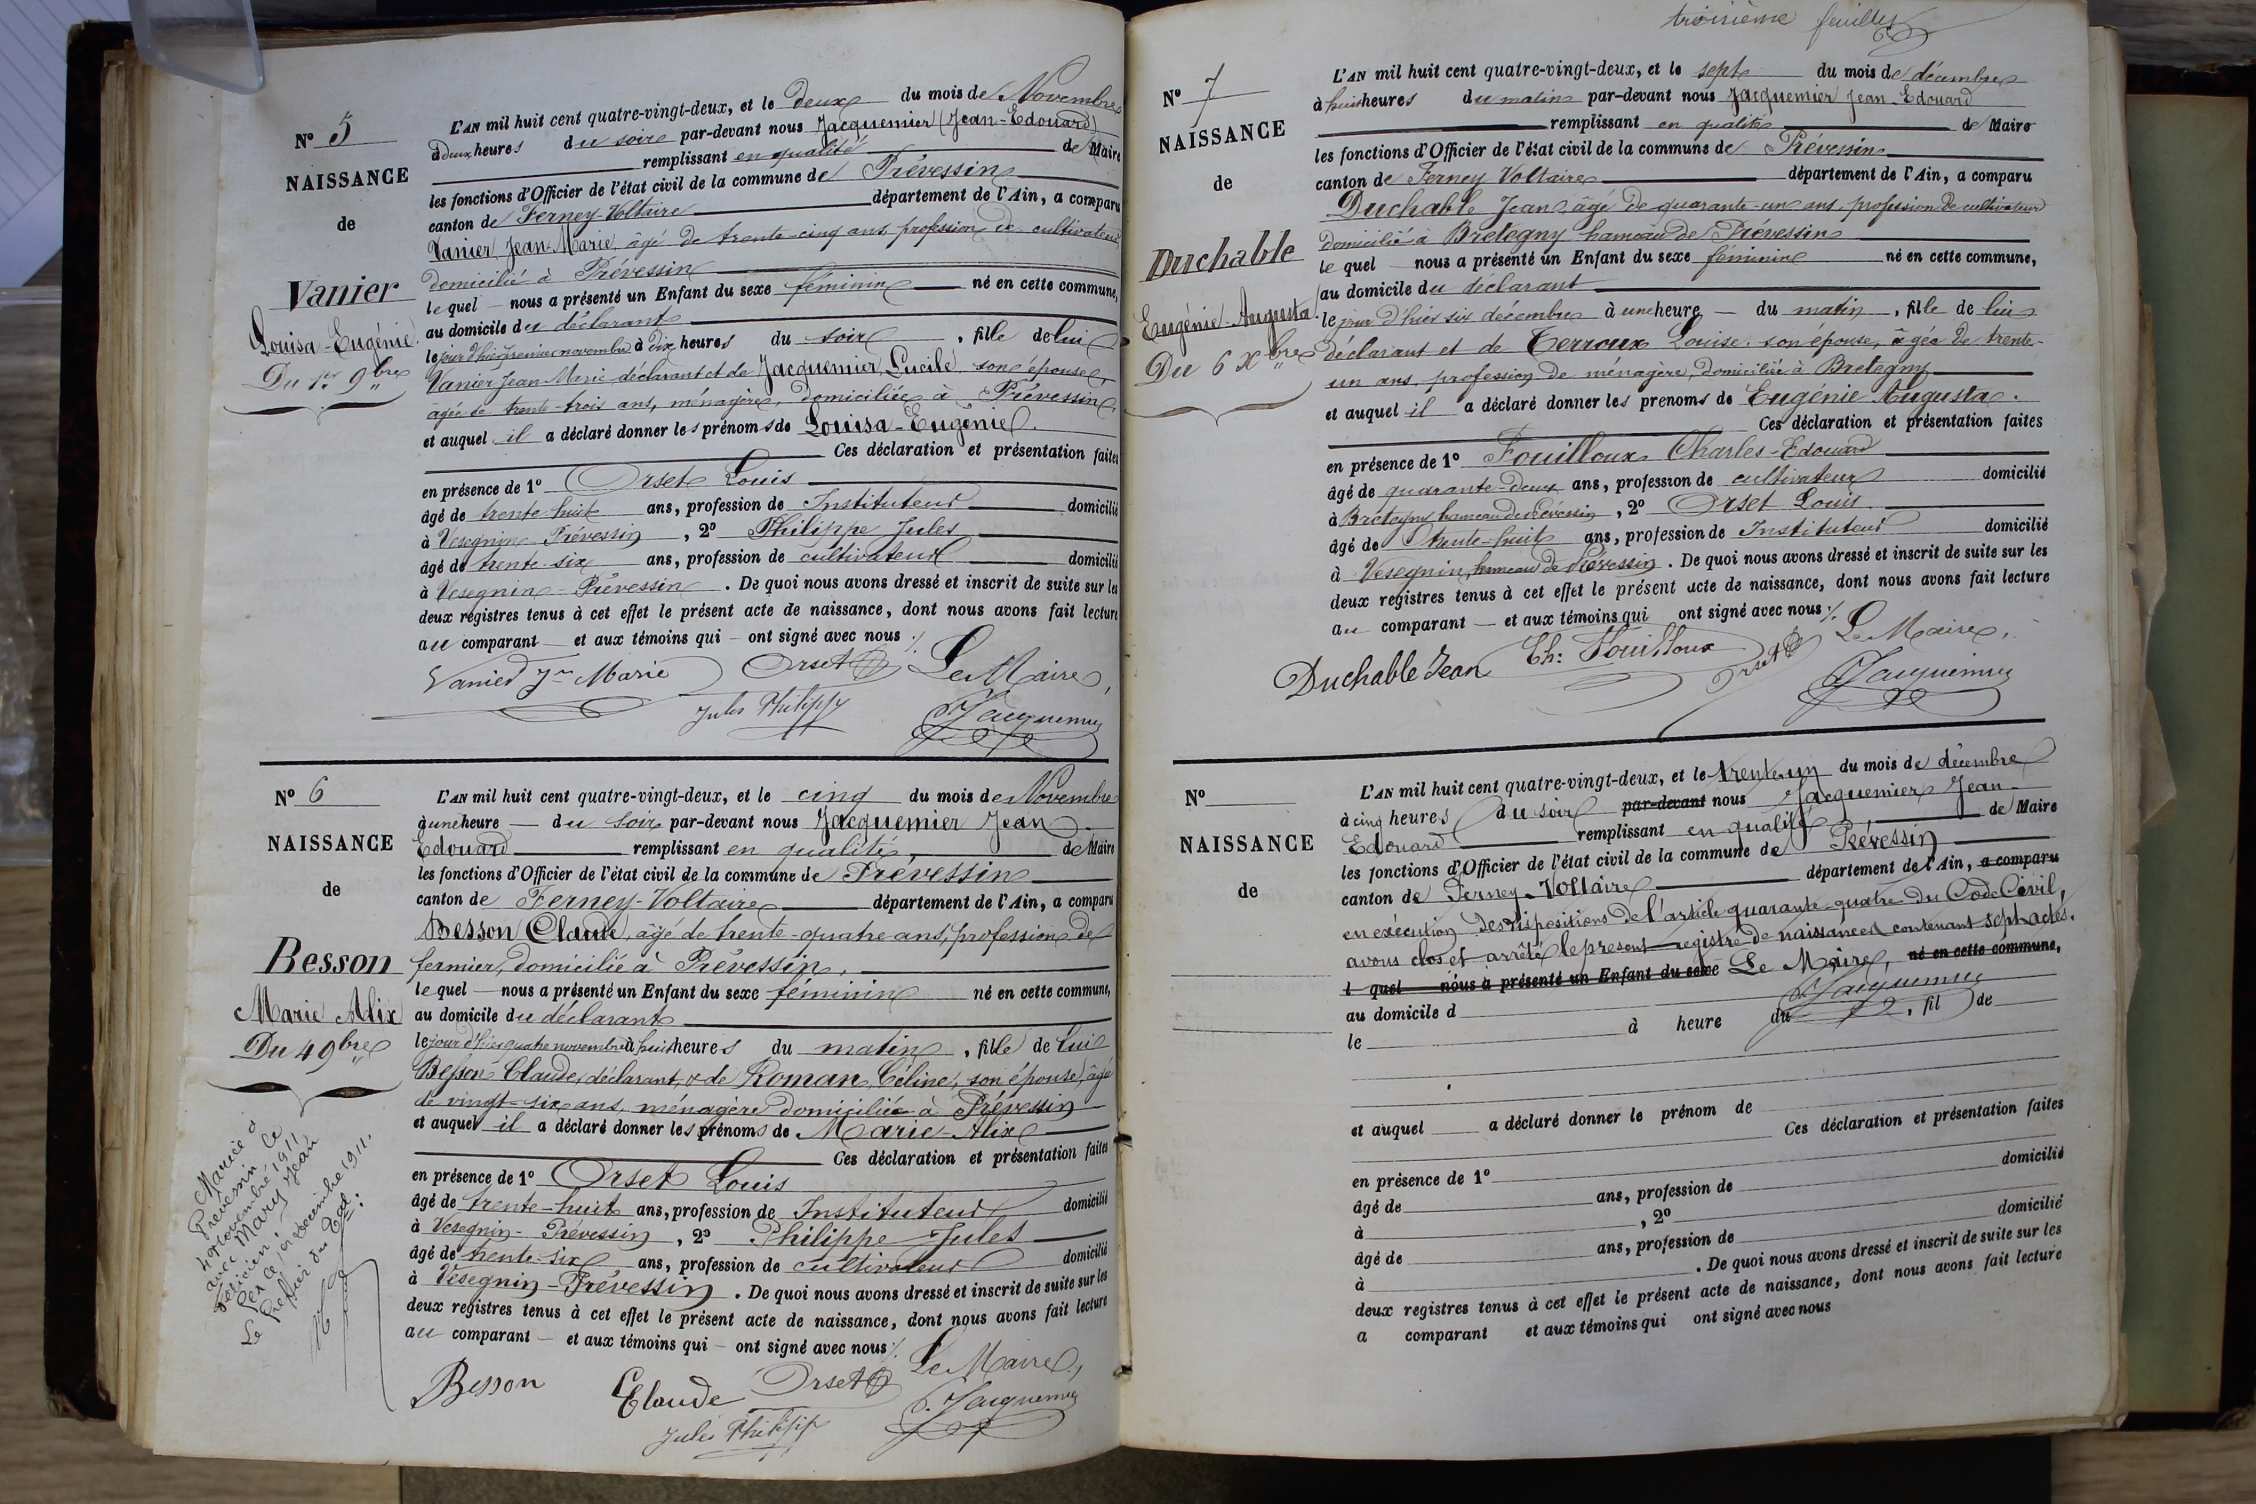 N° 5
NAISSANCE
de
Vanier
Louisa-Eugénie.
Du 1er 9bre
L'AN mil huit cent quatre-vingt-deux, et le deux du mois de Novembre
à deux heures du soir par-devant nous Jacquemier (Jean-Edouard)
remplissant en qualité de Maire
les fonctions d'Officier de l'état civil de la commune de Prévessin
canton de Ferney-Voltaire département de l'Ain, a comparu
Vanier Jean-Marie, âgé de trente-cinq ans, profession de cultivateur
domicilié à Prévessin
le quel nous a présenté un Enfant du sexe féminin né en cette commune,
au domicile du déclarant
le jour d'hier premier novembre à dix heures du soir, fille de lui
Vanier Jean-Marie déclarant et de Jacquemier Lucile son épouse,
âgée de trente-trois ans, ménagère, domiciliée à Prévessin,
et auquel il a déclaré donner les prénoms de Louisa-Eugénie.
Ces déclaration et présentation faites
en présence de 1° Orset Louis
âgé de trente-huit ans, profession de Instituteur domicilié
à Vesegnin-Prévessin, 2° Philippe Jules
âgé de trente-six ans, profession de cultivateur domicilié
à Vesegnin-Prévessin. De quoi nous avons dressé et inscrit de suite sur les
deux registres tenus à cet effet le présent acte de naissance, dont nous avons fait lecture
au comparant — et aux témoins qui — ont signé avec nous ./.
Vanier Jn Marie Orset Le Maire,
Jules Philippe Jacquemier
N° 6
NAISSANCE
de
Besson
Marie Alix
Du 4 9bre
L'AN mil huit cent quatre-vingt-deux, et le cinq du mois de Novembre
à une heure — du soir par-devant nous Jacquemier Jean
Edouard remplissant en qualité, de Maire
les fonctions d'Officier de l'état civil de la commune de Prévessin
canton de Ferney-Voltaire département de l'Ain, a comparu
Besson Claude, âgé de trente-quatre ans, profession de
fermier, domicilié à Prévessin,
le quel — nous a présenté un Enfant du sexe féminin né en cette commune,
au domicile du déclarant
le jour d'hier quatre novembre à huit heures du matin, fille de lui
Besson Claude, déclarant, & de Roman Céline, son épouse, âgée
de vingt-six ans, ménagère domiciliée à Prévessin
et auquel il a déclaré donner les prénoms de Marie-Alix
Ces déclaration et présentation faites
en présence de 1° Orset Louis
âgé de trente-huit ans, profession de Instituteur domicilié
à Vesegnin-Prévessin, 2° Philippe Jules
âgé de trente-six ans, profession de cultivateur domicilié
à Vesegnin-Prévessin. De quoi nous avons dressé et inscrit de suite sur les
deux registres tenus à cet effet le présent acte de naissance, dont nous avons fait lecture
au comparant — et aux témoins qui — ont signé avec nous ./.
Besson Claude Orset Le Maire,
Jules Philipp J. Jacquemier
Mariée à
Prévessin le
4 novembre 1911
avec Mary Jean
Félicien.
Gex ce 1er décembre 1911.
Le Greffier du Tal:
troisième feuillet
N° 7
NAISSANCE
de
Duchable
Eugénie-Augusta
Du 6 Xbre
L'AN mil huit cent quatre-vingt-deux, et le sept du mois de décembre
à huit heures du matin par-devant nous Jacquemier Jean-Edouard
remplissant en qualité de Maire
les fonctions d'Officier de l'état civil de la commune de Prévessin
canton de Ferney Voltaire département de l'Ain, a comparu
Duchable Jean, âgé de quarante-un ans, profession de cultivateur
domicilié à Bretegny hameau de Prévessin
le quel nous a présenté un Enfant du sexe féminin né en cette commune,
au domicile du déclarant
le jour d'hier six décembre à une heure — du matin, fille de lui
déclarant et de Terroux Louise, son épouse, âgée de trente-
un ans, profession de ménagère, domiciliée à Bretegny
et auquel il a déclaré donner les prenoms de Eugénie Augusta.
Ces déclaration et présentation faites
en présence de 1° Fouilloux Charles-Edouard
âgé de quarante-deux ans, profession de cultivateur domicilié
à Bretegny hameau de Prévessin, 2° Orset Louis
âgé de trente-huit ans, profession de Instituteur domicilié
à Vesegnin, hameau de Prévessin. De quoi nous avons dressé et inscrit de suite sur les
deux registres tenus à cet effet le présent acte de naissance, dont nous avons fait lecture
au comparant — et aux témoins qui ont signé avec nous ./.
Duchable Jean Ch: Fouilloux Orset Le Maire,
Jacquemier
N°
NAISSANCE
de
L'AN mil huit cent quatre-vingt-deux, et le trente-un du mois de décembre
à cinq heures du soir par-devant nous Jacquemier Jean-
Edouard remplissant en qualité de Maire
les fonctions d'Officier de l'état civil de la commune de Prévessin
canton de Ferney-Voltaire département de l'Ain, a comparu
en exécution des dispositions de l'article quarante-quatre du Code Civil,
avons clos et arrêté le présent registre de naissances contenant sept actes.
l quel nous a présenté un Enfant du sexe Le Maire, né en cette commune,
au domicile d Jacquemier
le à heure du , fil de
et auquel a déclaré donner le prénom de
Ces déclaration et présentation faites
en présence de 1°
âgé de ans, profession de domicilié
à , 2°
âgé de ans, profession de domicilié
à . De quoi nous avons dressé et inscrit de suite sur les
deux registres tenus à cet effet le présent acte de naissance, dont nous avons fait lecture
a comparant et aux témoins qui ont signé avec nous